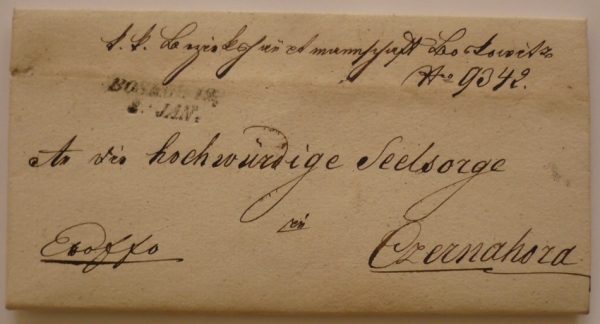 k. k. Bezirkshauptmannschaft Boskowitz
No 9342.
BOSKOWITZ
2. JAN.
An die hochwürdige Seelsorge
in
Exoffo Czernahora